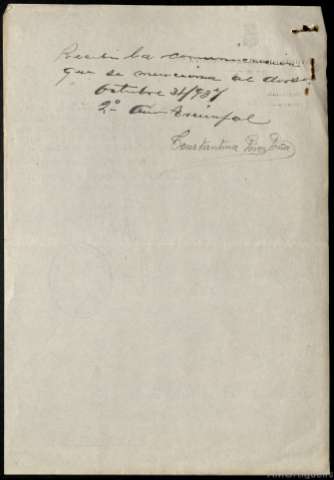 Recibi la comunicacion
que se menciona al dorso
Octubre 31/937
2º Año Triunfal
Constantina Pérez